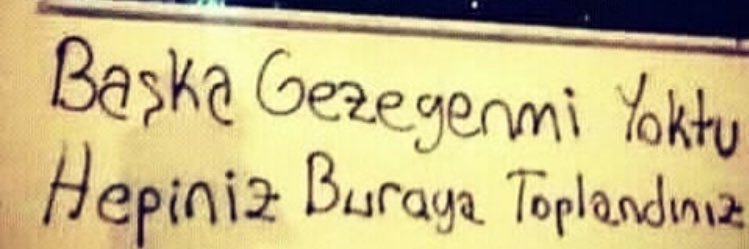 Başka Gezegenmi Yoktu
Hepiniz Buraya Toplandınız